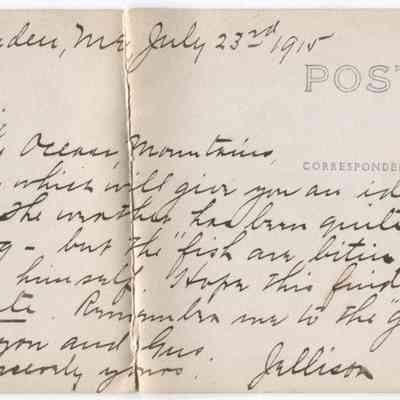 den, Me. July 23rd 1915
POST
Ocean Mountains,
CORRESPONDE
which will give you an id
The weather has been quite
g - but the "fish are bitin
himself. Hope this find
Remember me to the "g
you and Gus.
sincerely yours. Jellison